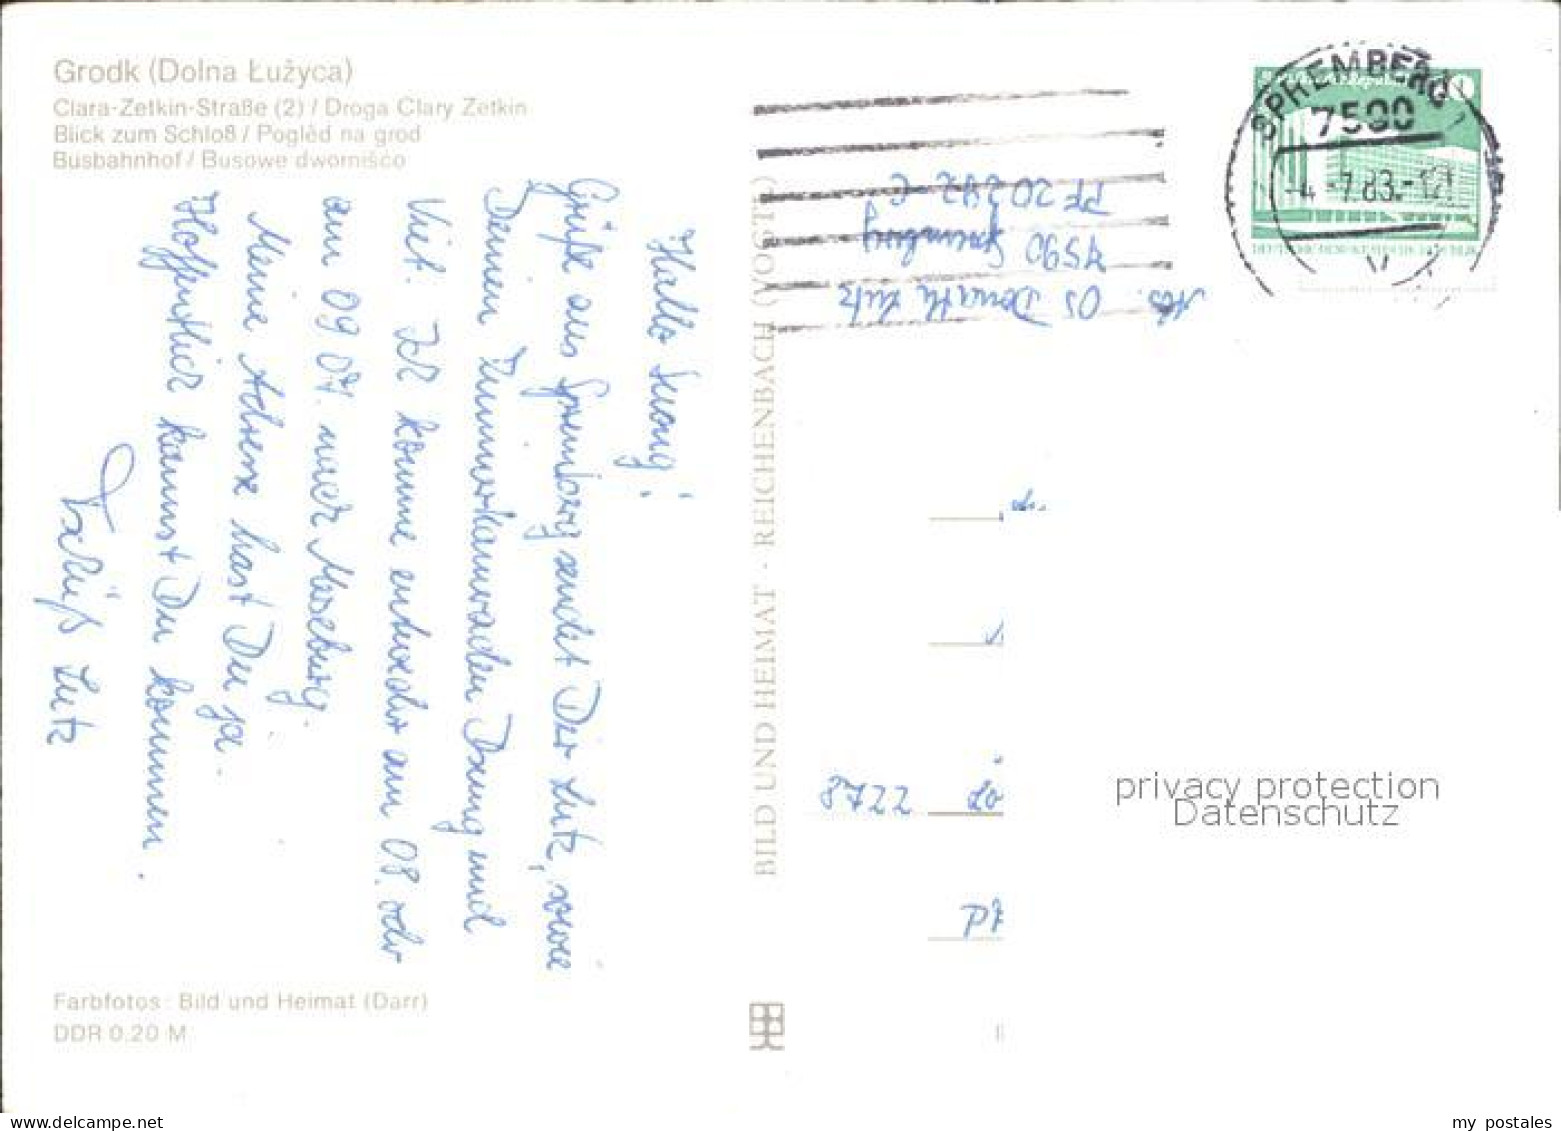 Grodk (Dolna Łužyca)
Clara-Zetkin-Straße (2) / Droga Clary Zetkin
Blick zum Schloß / Poglěd na grod
Busbahnhof / Busowe dwornišćo
Hallo
Grüße aus Spremberg sendet Dir Lutz, sowie
Deinen Zimmerkameraden Dzung und
Viet. Ich komme entweder am 08. oder
am 09 07. nach Merseburg.
Meine Adresse hast Du ja.
Hoffentlich kannst Du kommen.
Tschüß Lutz
Farbfotos: Bild und Heimat (Darr)
DDR 0,20 M
BILD UND HEIMAT · REICHENBACH (VOGTL)
Abs. OS Lutz
7590 Spremberg
PF 20 242 C
SPREMBERG 1
7590
-4.-7.83.-12
8722 Lö
PF
privacy protection
Datenschutz
my postales